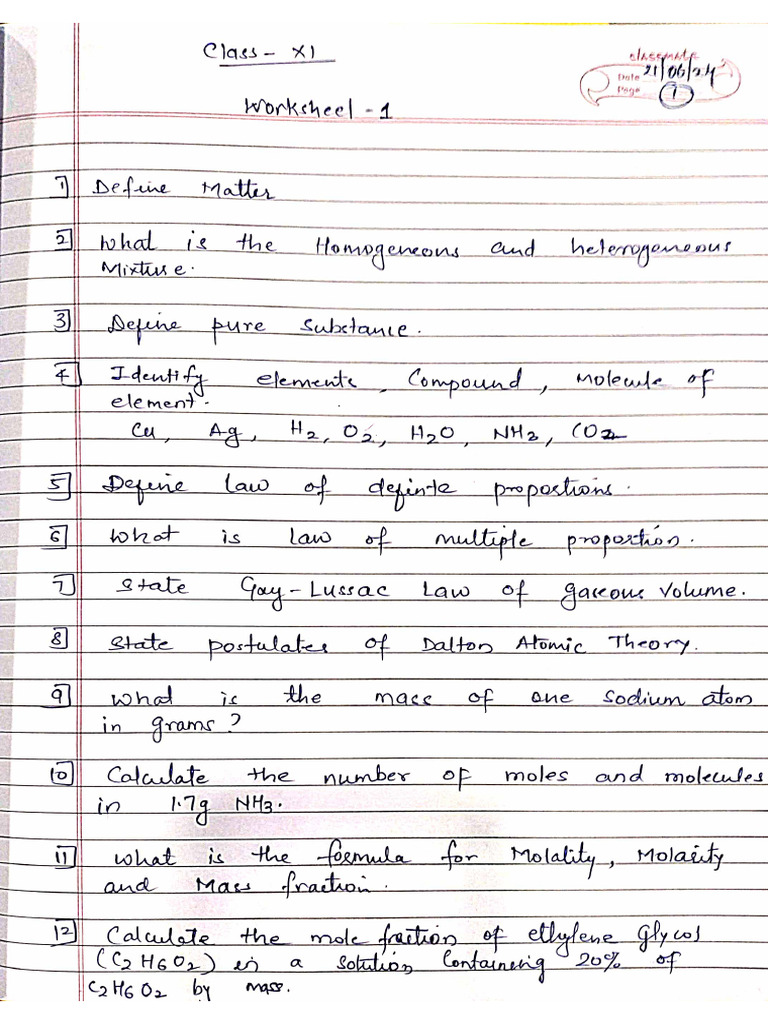 Class - XI
classmate
Date 21/06/24
Page 1
Worksheet - 1
1) Define Matter
2) What is the Homogeneous and heterogeneous
Mixture.
3) Define pure substance.
4) Identify elements, Compound, Molecule of
element.
Cu, Ag, H2, O2, H2O, NH3, CO2
5) Define Law of definite proportions.
6) What is law of multiple proportion.
7) State Gay-Lussac Law of gaseous volume.
8) State postulates of Dalton Atomic Theory.
9) What is the mass of one sodium atom
in grams?
10) Calculate the number of moles and molecules
in 1.7g NH3.
11) What is the formula for Molality, Molarity
and Mass fraction.
12) Calculate the mole fraction of ethylene Glycol
(C2H6O2) in a solution Containing 20% of
C2H6O2 by mass.